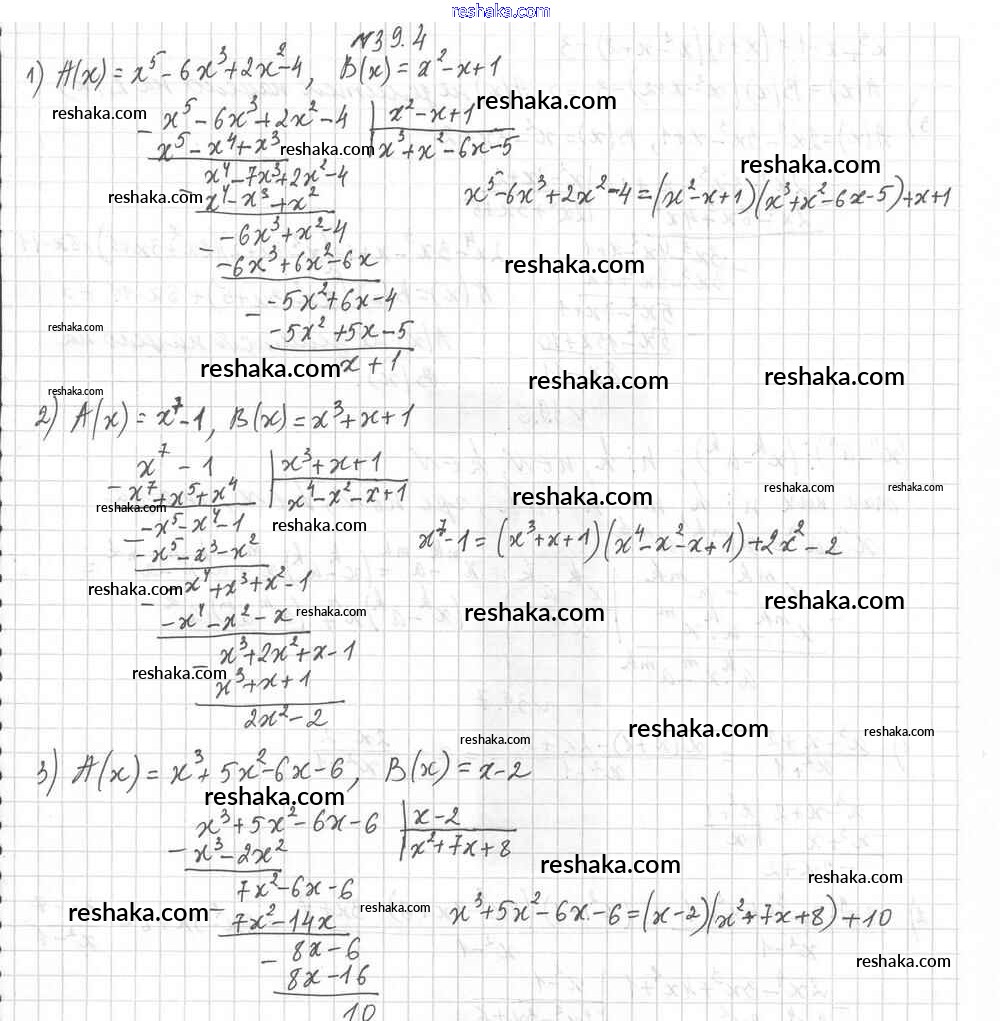 reshaka.com
№39.4
1) A(x) = x⁵ - 6x³ + 2x² - 4, B(x) = x² - x + 1
reshaka.com
reshaka.com
- x⁵ - 6x³ + 2x² - 4 | x² - x + 1
x⁵ - x⁴ + x³ | x³ + x² - 6x - 5
reshaka.com
reshaka.com
x⁴ - 7x³ + 2x² - 4
reshaka.com
- x⁴ - x³ + x²
x⁵ - 6x³ + 2x² - 4 = (x² - x + 1)(x³ + x² - 6x - 5) + x + 1
- -6x³ + x² - 4
-6x³ + 6x² - 6x
reshaka.com
- -5x² + 6x - 4
reshaka.com
-5x² + 5x - 5
reshaka.com
x + 1
reshaka.com
reshaka.com
reshaka.com
2) A(x) = x⁷ - 1, B(x) = x³ + x + 1
x⁷ - 1 | x³ + x + 1
- x⁷ + x⁵ + x⁴ | x⁴ - x² - x + 1
reshaka.com
reshaka.com
reshaka.com
reshaka.com
- -x⁵ - x⁴ - 1
reshaka.com
- x⁵ - x³ - x²
x⁷ - 1 = (x³ + x + 1)(x⁴ - x² - x + 1) + 2x² - 2
reshaka.com
- -x⁴ + x³ + x² - 1
reshaka.com
reshaka.com
reshaka.com
-x⁴ - x² - x
- x³ + 2x² + x - 1
reshaka.com
reshaka.com
x³ + x + 1
2x² - 2
reshaka.com
reshaka.com
reshaka.com
3) A(x) = x³ + 5x² - 6x - 6, B(x) = x - 2
reshaka.com
x³ + 5x² - 6x - 6 | x - 2
- x³ - 2x² | x² + 7x + 8
reshaka.com
reshaka.com
- 7x² - 6x - 6
7x² - 14x
reshaka.com
reshaka.com
x³ + 5x² - 6x - 6 = (x - 2)(x² + 7x + 8) + 10
- 8x - 6
reshaka.com
8x - 16
10